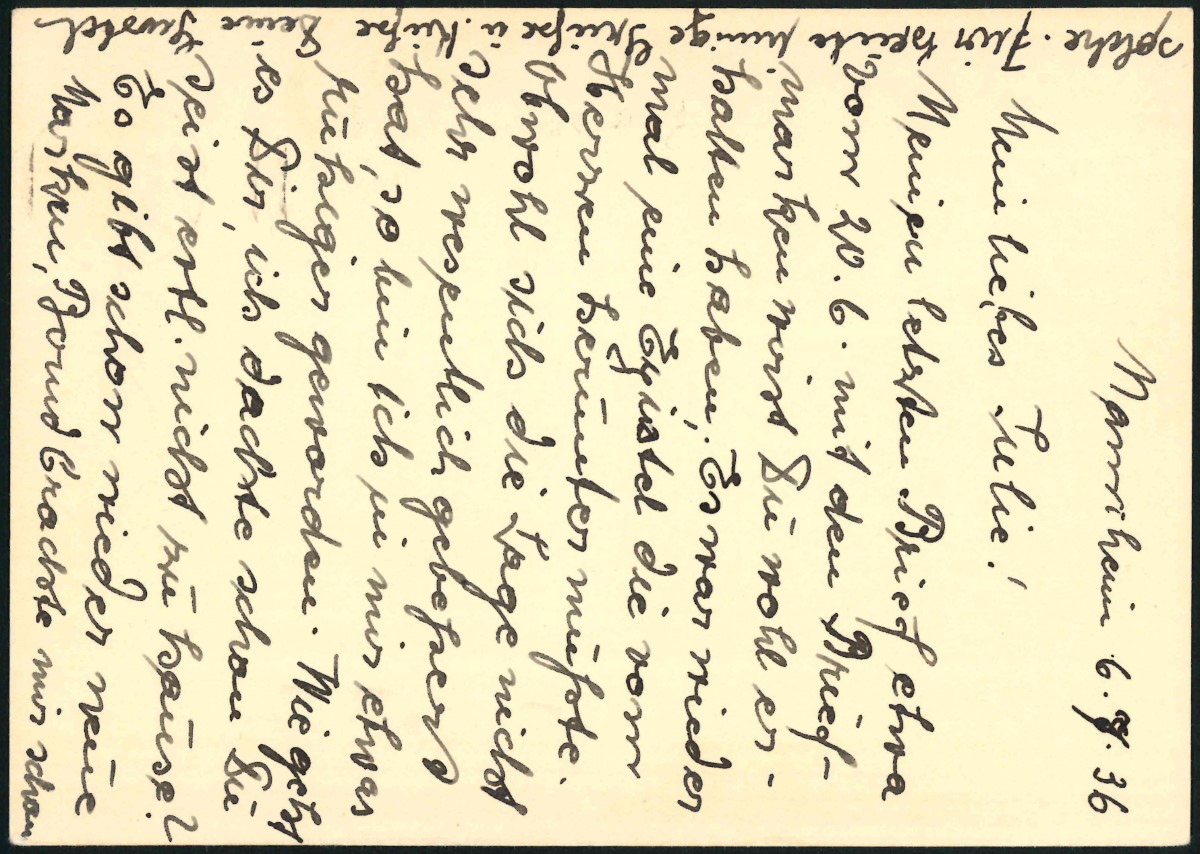 Mannheim 6.7.36
Mein liebes Julie!
Meinen letzten Brief etwa
vom 20.6. mit den Brief-
marken wirst Du wohl er-
halten haben. Es war wieder
mal eine Epistel die vom
Herzen herunter müßte.
Obwohl sich die Lage nicht
sehr wesentlich gebessert
hat, so bin ich in mir etwas
ruhiger geworden. Wie geht
es Dir, ich dachte schon Du
seist evtl. nicht zu hause?
Es gibt schon wieder neue
Marken, Brachte mir schon
solche. Für heute innige Grüße u. Küße Deine